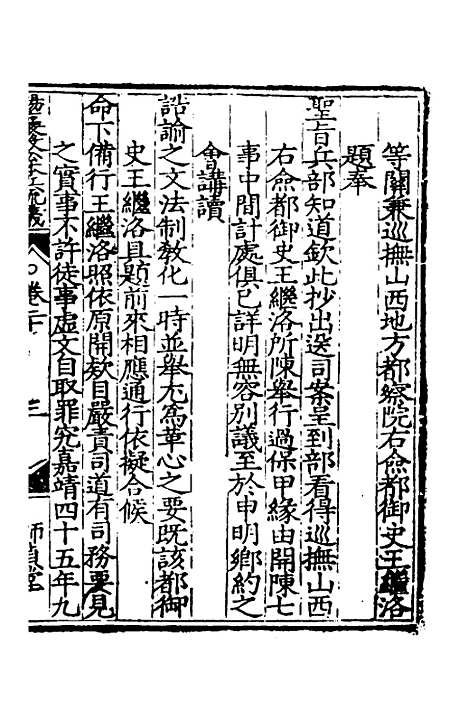 等關兼巡撫山西地方都察院右僉都御史王繼洛
題奉
聖旨兵部知道欽此抄出送司案呈到部看得巡撫山西
右僉都御史王繼洛所陳舉行過保甲緣由開陳七
事中間計處俱已詳明無容別議至於申明鄉約之
會講讀
誥諭之文法制教化一時並舉尤爲革心之要既該都御
史王繼洛具題前來相應通行依擬合候
命下備行王繼洛照依原開款目嚴責司道有司務要見
之實事不許徒事虛文自取罪究嘉靖四十五年九
卷二十 三